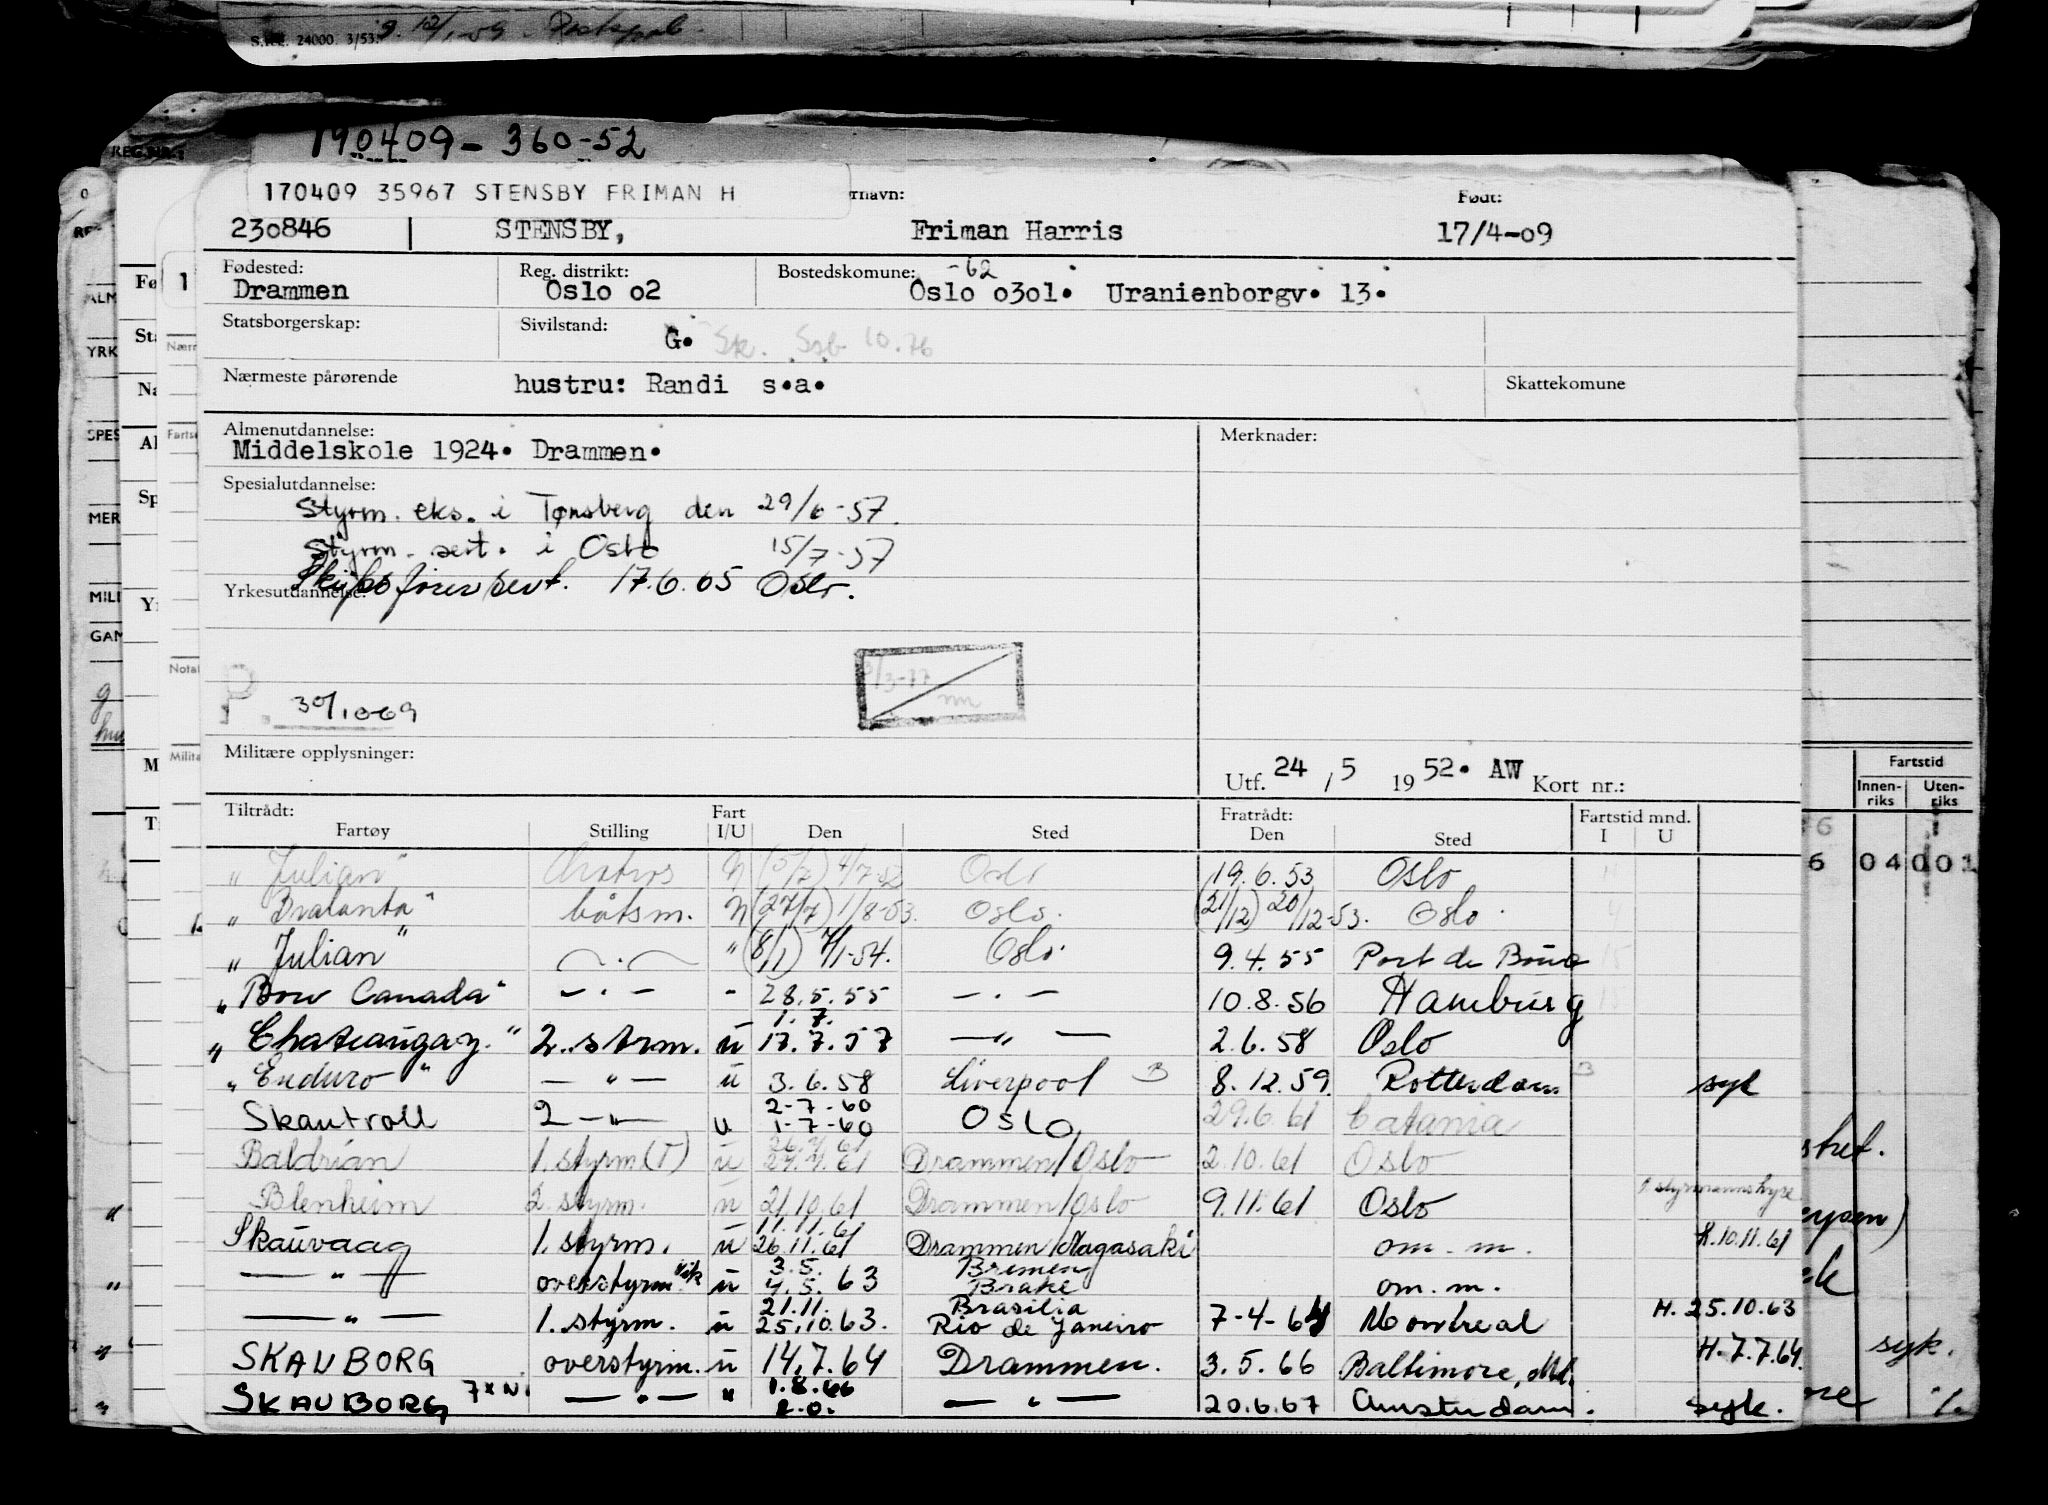 S.R.E. 24000. 3/53.
190409 - 360-52
REG.NR.
170409 35967 STENSBY FRIMAN H
rnavn: Født:
230846 STENSBY, Friman Harris 17/4-09
Fødested: Reg. distrikt: Bostedskomune: -62
Drammen Oslo o2 Oslo o3o1. Uranienborgv. 13.
Statsborgerskap: Sivilstand: G. Sk. Ssb 10.76
Nærmeste pårørende hustru: Randi s.a. Skattekomune
Almenutdannelse: Merknader:
Middelskole 1924. Drammen.
Spesialutdannelse:
Styrm. eks. i Tønsberg den 29/6-57.
Styrm. sert. i Oslo 15/7-57
Skipsførersert. 17.6.65 Oslo.
Yrkesutdannelse:
P. 30/10-69
Militære opplysninger:
Utf. 24/5 1952. AW Kort nr.:
Tiltrådt: Fart Fratrådt: Fartstid mnd.
Fartøy Stilling I/U Den Sted Den Sted I U
"Julian" Matros N (5/7) 4/7-52 Oslo 19.6.53 Oslo
"Bralanta" båtsm. N (27/7) 1/8-53. Oslo. (21/12) 20/12-53. Oslo.
"Julian" — . — " (8/1) 7/1-54. Oslo. 9.4.55 Port de Bouc 15
"Bow Canada" — . — - 28.5.55 — . — 10.8.56 Hamburg 15
1.7.
"Chateaugay." 2. strm. u 17.7.57 — " — 2.6.58 Oslo
"Enduro" — " — u 3.6.58 Liverpool B 8.12.59. Rotterdam B syk
2-7-60
Skautroll 2 — " — u 1-7-60 OSLO 29.6.61 Catania
Baldrian 1. styrm (T) u 27.7.61 Drammen/Oslo 2.10.61 Oslo
" Blenheim 2. styrm. u 21.10.61 Drammen/Oslo 9.11.61 Oslo 1 styrmannshyre
11.11.61
Skauvaag 1. styrm. u 26.11.61 Drammen/Nagasaki om. m. H. 10.11.61
3.5. Bremen
" — " — overstyrm. vik u 4.5.63 Brake om. m.
21.11. Brasilia
— " — 1. styrm. u 25.10.63. Rio de Janeiro 7-4-64 Montreal H. 25.10.63
" SKAUBORG overstyrm. u 14.7.64 Drammen. 3.5.66 Baltimore, Md. H. 7.7.64.
1.8.66
" SKAUBORG 7xN. — " — " — " — 20.6.67 Amsterdam. syk.
Fartstid
Innen-riks Uten-riks
6 04 001
syk.